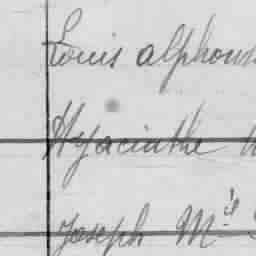 Louis alphons
Hyacinthe
Joseph M.el